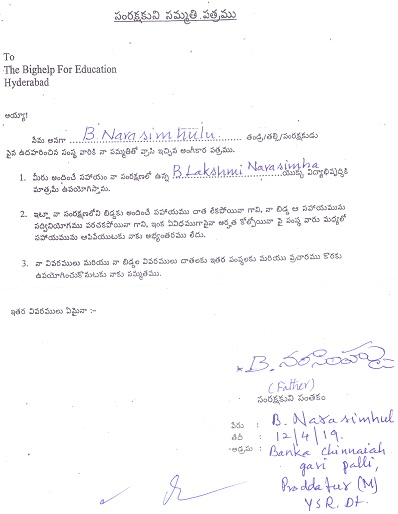 సంరక్షకుని సమ్మతి పత్రము
To
The Bighelp For Education
Hyderabad
అయ్యా!
నేను అనగా B. Narasimhulu తండ్రి/తల్లి/సంరక్షకుడు
పైన ఉదహరించిన సంస్థ వారికి నా సమ్మతితో వ్రాసి ఇచ్చిన అంగీకార పత్రము.
1. మీరు అందించే సహాయం నా సంరక్షణలో ఉన్న B. Lakshmi Narasimha యొక్క విద్యాభివృద్ధికి
మాత్రమే ఉపయోగిస్తాను.
2. ఇట్లా నా సంరక్షణలోని బిడ్డకు అందించే సహాయము దాత లేకపోయినా గాని, నా బిడ్డ ఆ సహాయమును
సద్వినియోగము పరచకపోయినా గాని, ఇంక ఏవిధముగానైనా అర్హత కోల్పోయినా పై సంస్థ వారు మధ్యలో
సహాయమును ఆపివేయుటకు నాకు అభ్యంతరము లేదు.
3. నా వివరములు మరియు నా బిడ్డల వివరములు దాతలకు ఇతర సంస్థలకు మరియు ప్రచారము కొరకు
ఉపయోగించుకొనుటకు నాకు సమ్మతము.
ఇతర వివరములు ఏమైనా :-
B. నరసింహులు
(Father)
సంరక్షకుని సంతకం
పేరు : B. Narasimhul
తేదీ : 12/4/19.
అడ్రసు : Banka chinnaiah
gari palli,
Proddatur (M)
YSR. Dt.